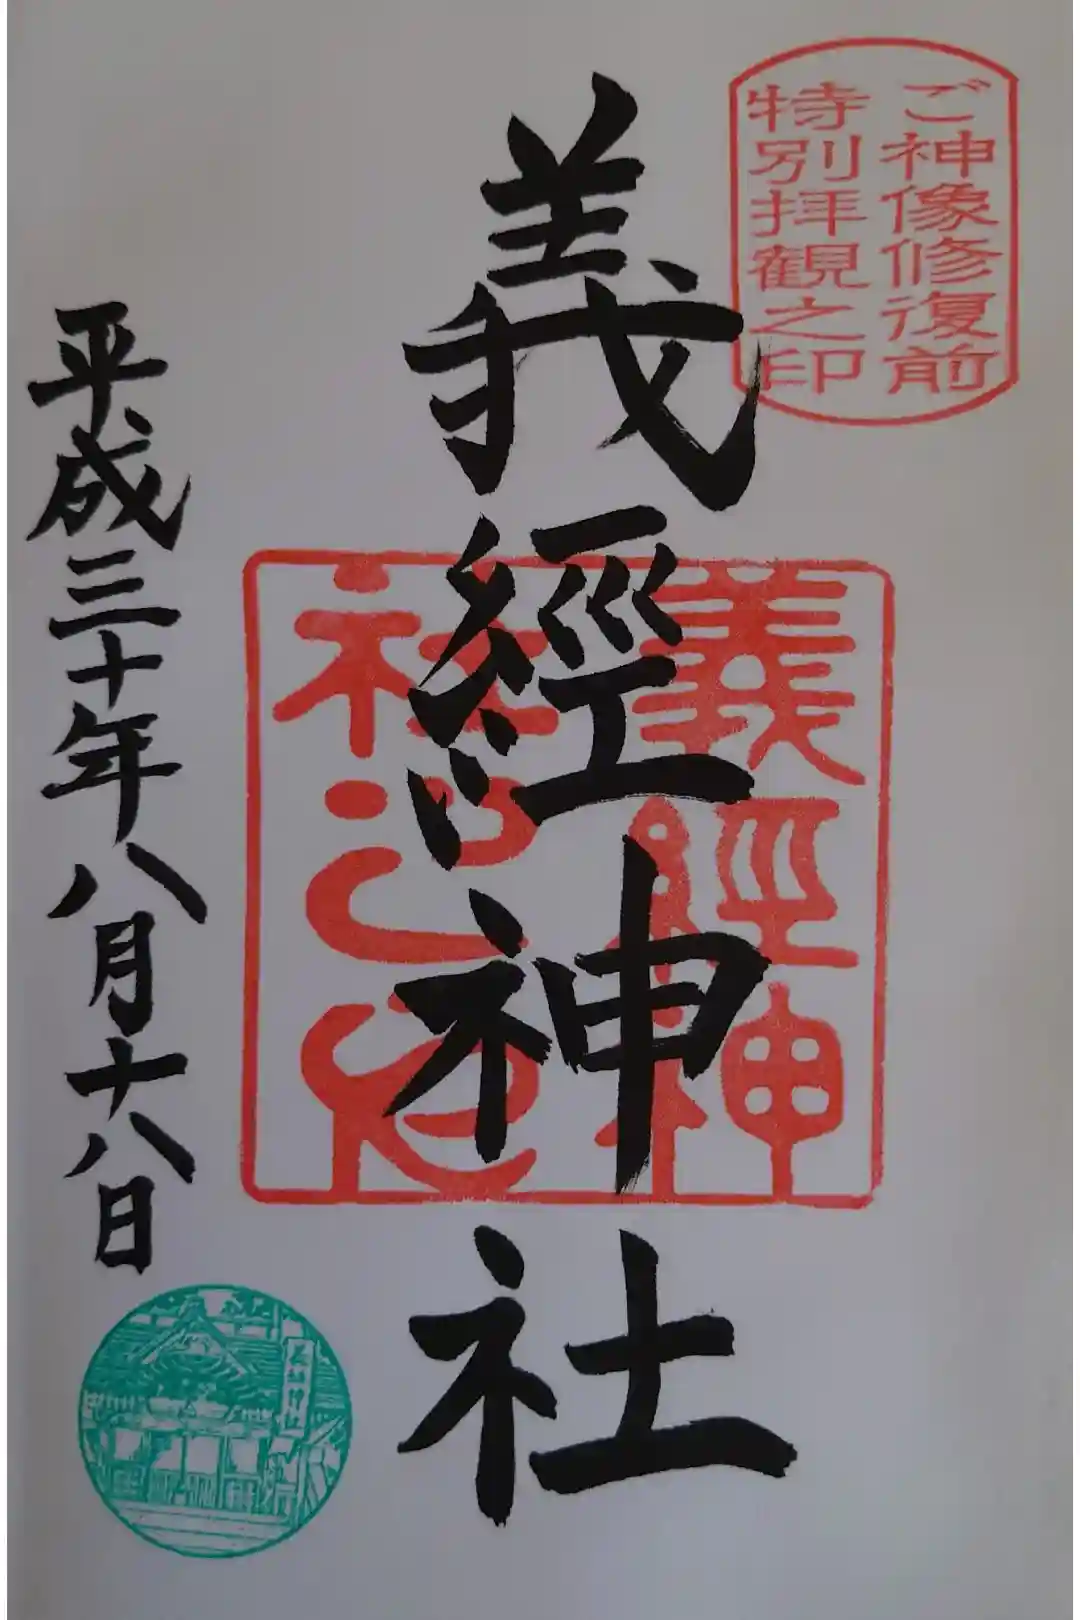 ご神像修復前
特別拝観之印
義經神社
義經神
社之印
平成三十年八月十八日